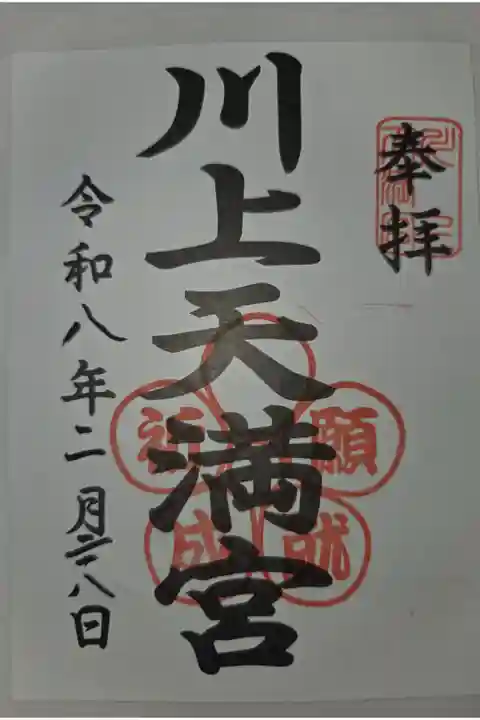 奉拝
川上天満宮
祈願成就
令和八年二月二十八日